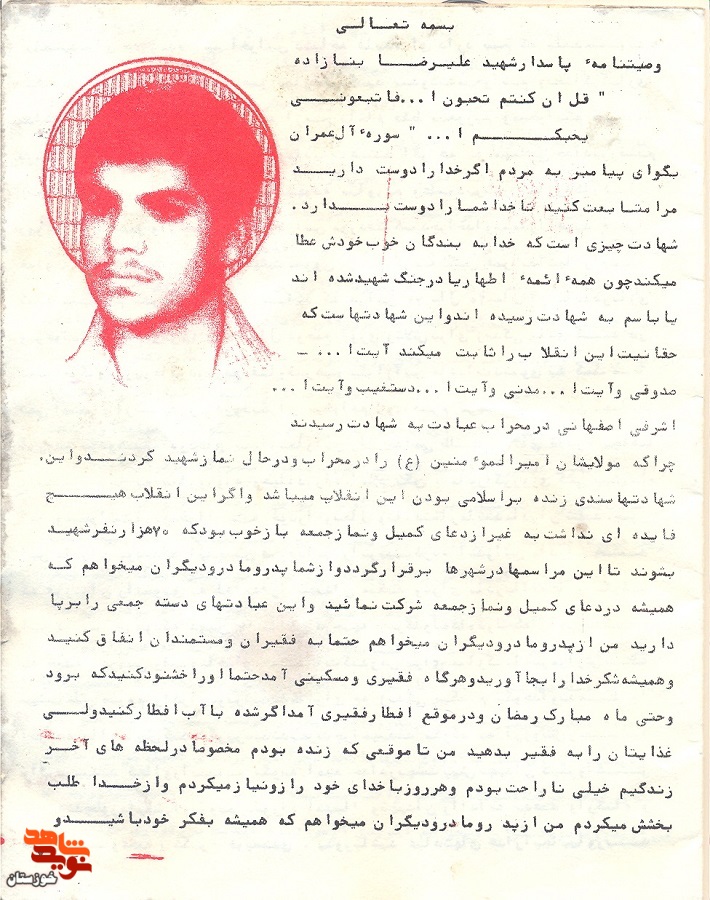 بسمه تعالی
وصیتنامهٔ پاسدار شهید علیرضا بنازاده
" قل ان کنتم تحبون ا...فاتبعونی
یحبکم ا... " سورهٔ آل‌عمران
بگوای پیامبر به مردم اگر خدا را دوست دارید
مرا متابعت کنید تا خدا شما را دوست بدارد.
شهادت چیزی است که خدا به بندگان خوب خودش عطا
میکند چون همهٔ ائمهٔ اطهار یا در جنگ شهید شده اند
یا با سم به شهادت رسیده اند و این شهادتهاست که
حقانیت این انقلاب را ثابت میکند آیت ا... ـ
صدوقی و آیت ا...مدنی و آیت ا...دستغیب و آیت ا...
اشرفی اصفهانی در محراب عبادت به شهادت رسیدند
چرا که مولایشان امیرالموٴمنین (ع) را در محراب و در حال نماز شهید کردند و این.
شهادتها سندی زنده بر اسلامی بودن این انقلاب میباشد و اگر این انقلاب هیچ
فایده ای نداشت به غیر از دعای کمیل و نماز جمعه باز خوب بود که ۷۰هزار نفر شهید
بشوند تا این مراسمها در شهرها برقرار گردد و از شما پدر و مادر و دیگران میخواهم که
همیشه در دعای کمیل و نماز جمعه شرکت نمائید و این عبادتهای دسته جمعی را برپا
دارید من از پدر و مادر و دیگران میخواهم حتما به فقیران و مستمندان انفاق کنید
و همیشه شکر خدا را بجا آورید و هرگاه فقیری و مسکینی آمد حتما او را خشنود کنید که برود
و حتی ماه مبارک رمضان و در موقع افطار فقیری آمد اگر شده با آب افطار کنید ولی
غذایتان را به فقیر بدهید من تا موقعی که زنده بودم مخصوصاً در لحظه های آخر
زندگیم خیلی ناراحت بودم و هر روز با خدای خود راز و نیاز میکردم و از خدا طلب
بخشش میکردم من از پدر و مادر و دیگران میخواهم که همیشه بفکر خود باشید و
نوید شاهد
خوزستان